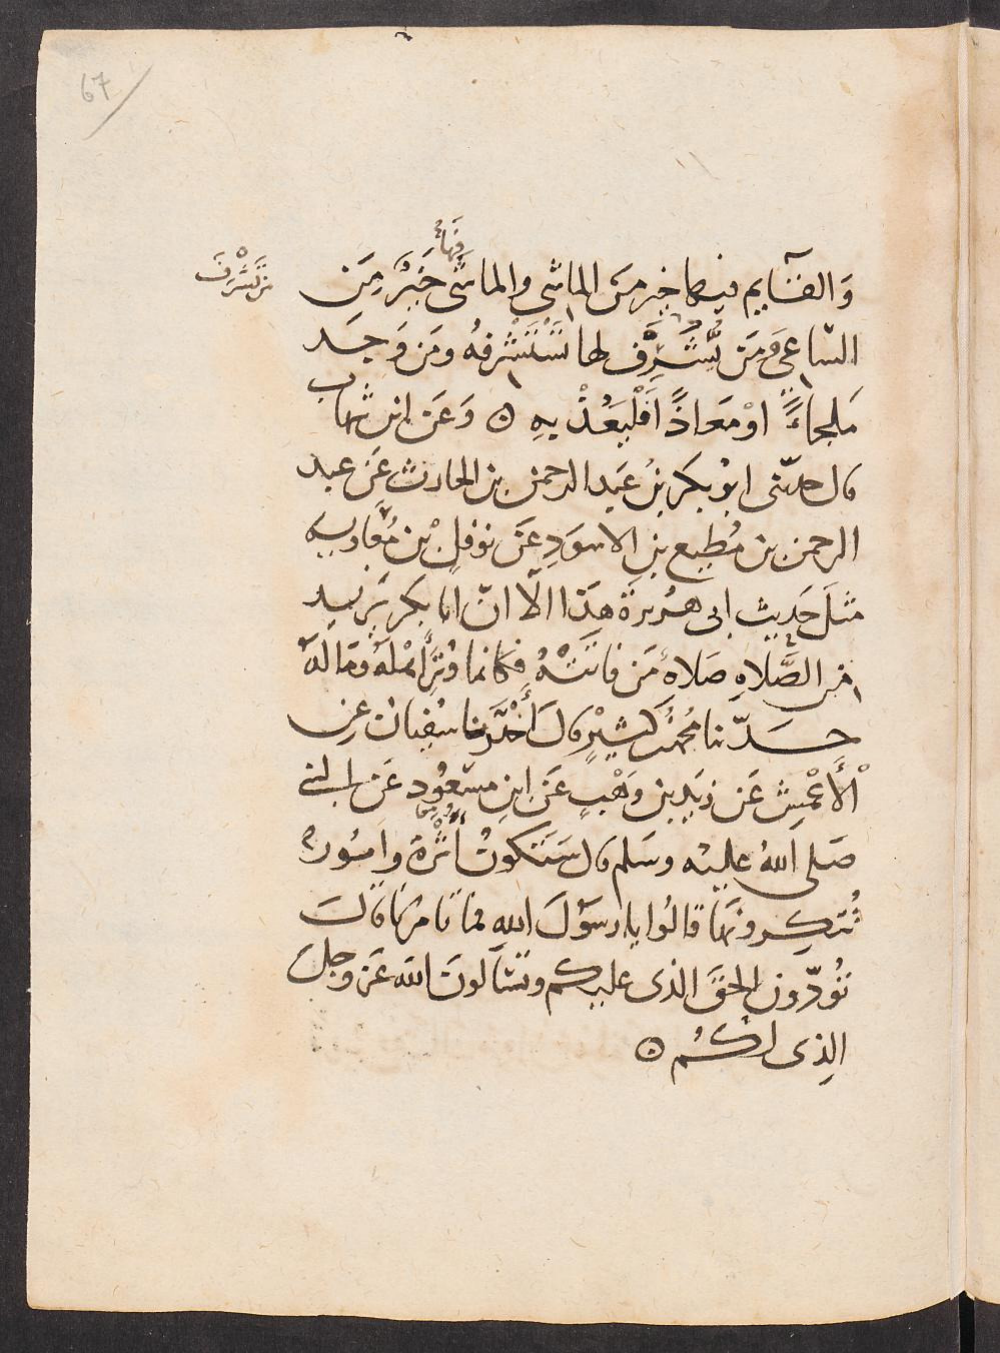 67
فيها
وَالقآيم فيها خير مِنَ الماشى والماشى خَيْرٌ مِنَ
مَن تَشَرَّفَ
السّاعِى وَمَن يُشْرِف لها تَسْتَشْرِفُهُ ومَن وَجَد
مَلجاءً اوْ مَعاذًا فَلْيَعُذْ بِهِ ⊙ وَعَن ابن شهاب
قال حدّثنى ابُو بكر بنُ عَبد الرحمن بن الحارث عَن عبد
الرحمن بن مُطِيع بنِ الاسوَدِ عَن نوفل بْن مُعَاويه
مثلَ حَديث ابى هُريرةَ هَذا الّا انّ ابا بكر يَزيد
مِن الصَّلَاةِ صَلاةٌ مَن فاتَتْهُ فكانما وُتِرَ اَهْلَهُ ومَالَهُ
حَدّثنا مُحَمّدُ بْنُ كَثِيْرٍ قال أَخْبَرنا سُفيان عن
الْأَعْمَشِ عَن زيد بن وَهْبٍ عَن ابن مسْعُودٍ عَن النبى
صَلى اللهُ عليْه وسَلم قال سَتَكونُ أَثْرَة وامُورٌ
تُنكِرونَها قالُوا يا رسُوْلَ اللهِ فما تامُرُنا قالَ
تُودّون الحقَّ الذى عليكم وتسْأَلونَ اللهَ عَز وجل
الِذى لكُم ⊙